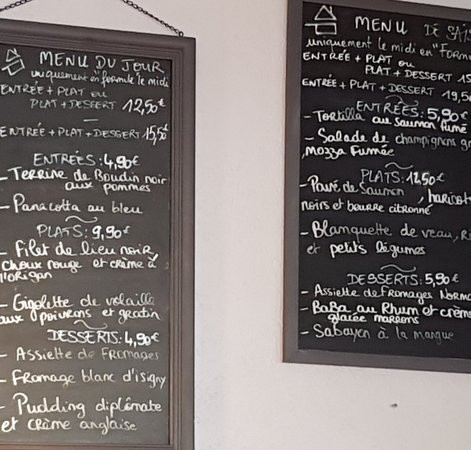 MENU DU JOUR
uniquement en formule le midi
ENTRÉE + PLAT ou
PLAT + DESSERT 12,50€
ENTRÉE + PLAT + DESSERT 15,5€
ENTRÉES: 4,90€
- Terrine de Boudin noir
aux pommes
- Panacotta au bleu
PLATS: 9,90€
- Filet de lieu noir,
choux rouge et crème à
l'origan
- Gigolette de volaille
aux poivrons et gratin
DESSERTS: 4,90€
- Assiette de FROMAGES
- FROMAGE blanc d'isigny
- Pudding diplômate
et crème anglaise
MENU DE
uniquement le midi en "Form
ENTRÉE + PLAT ou
PLAT + DESSERT
ENTRÉE + PLAT + DESSERT 19,5
ENTRÉES: 5,90€
- Tortilla au saumon fumé
- Salade de champignons
Mozza Fumée
PLATS: 12,50€
- Pavé de saumon, haricots
noirs et beurre citronné
- Blanquette de veau,
et petits légumes
DESSERTS: 5,90€
- Assiette de FROMAGES NORM
- BaBa au Rhum et crème
glacée marrons
- Sabayon à la mangue